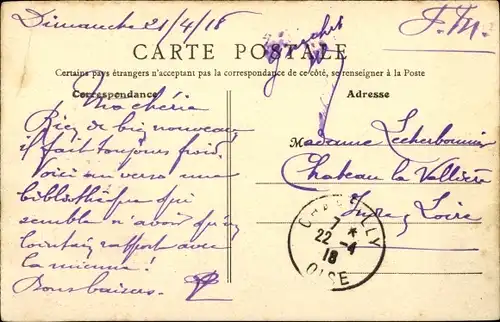 Dimanche 21/4/18
F.M.
CARTE POSTALE
Certains pays étrangers n'acceptant pas la correspondance de ce côté, se renseigner à la Poste
Correspondance
Adresse
Ma chérie
Rien de bien nouveau
il fait toujours froid.
Voici un verso une
bibliothèque qui
semble n'avoir qu'un
lointain rapport avec
la mienne!
Bons baisers.
Madame Lecherbonnier
Chateau la Vallière
Indre & Loire
CHANTILLY
7 *
22 -4
18
OISE